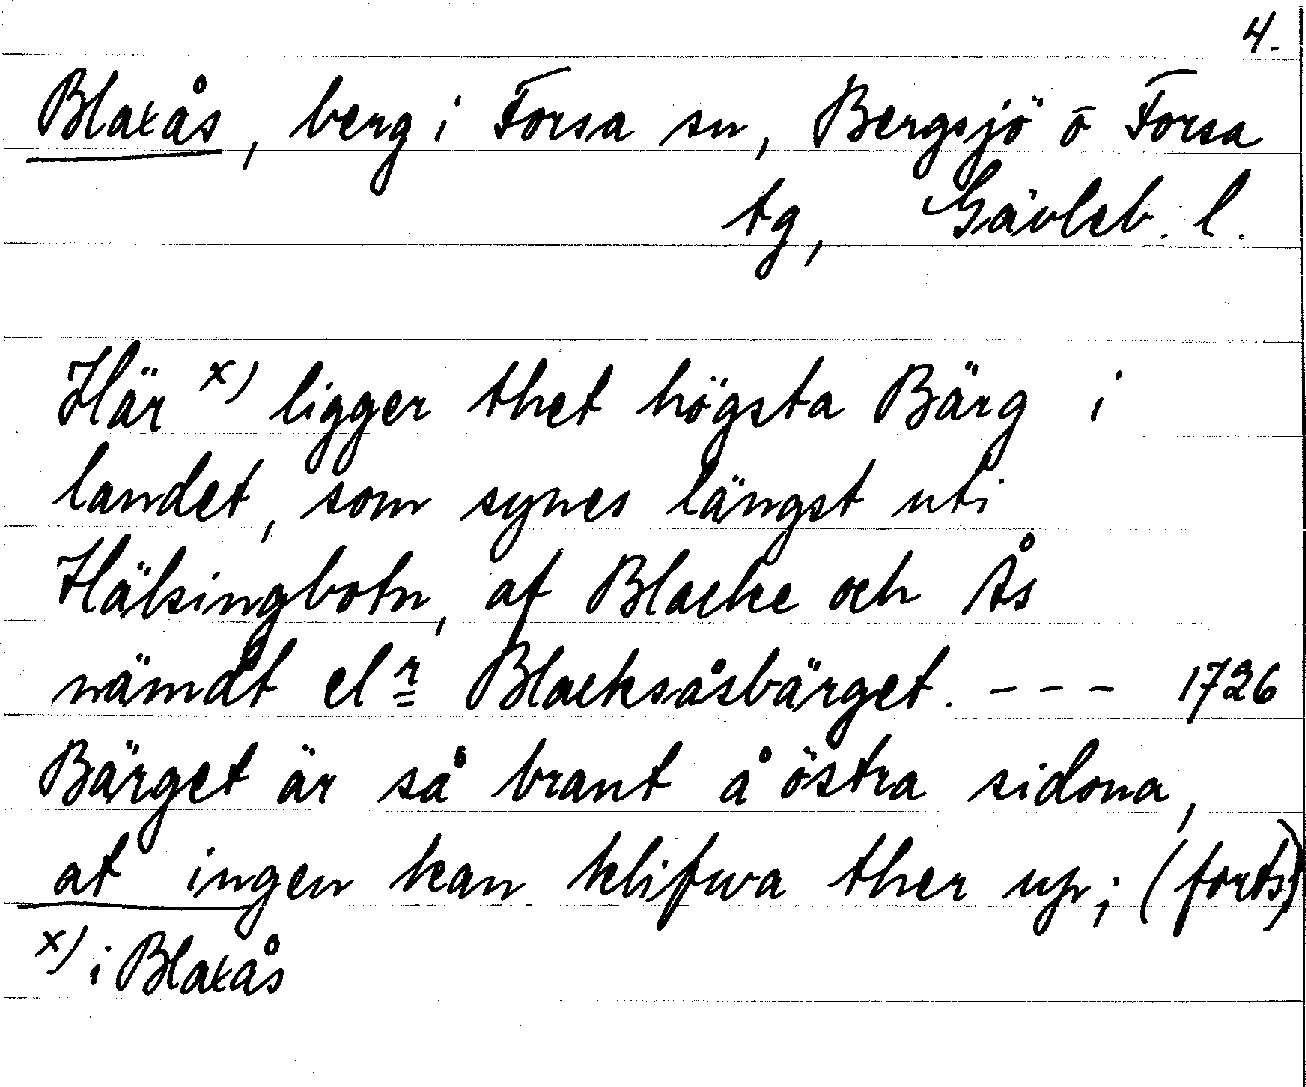 4.
Blaxås, berg i Forsa sn, Bergsjö o Forsa
tg, Gävleb. l.
Här x) ligger thet högsta Bärg i
landet, som synes längst uti
Hälsingbotn, af Blacke och Ås
nämdt elr Blacksåsbärget. --- 1726
Bärget är så brant å östra sidona,
at ingen kan klifwa ther up; (forts)
x) i Blaxås